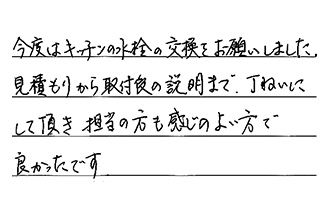 今度はキッチンの水栓の交換をお願いしました。
見積もりから取付後の説明まで、丁ねいに
して頂き 担当の方も感じのよい方で
良かったです